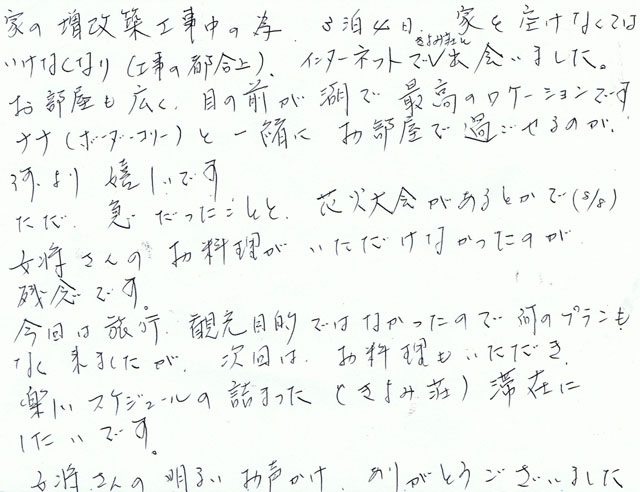 家の増改築工事中の為、3泊4日、家を空けなくては
いけなくなり(工事の都合上)、インターネットできよみ荘に出会いました。
お部屋も広く、目の前が湖で最高のロケーションです
ナナ(ボーダーコリー)と一緒にお部屋で過ごせるのが、
何より嬉しいです
ただ、急だったことと、花火大会があるとかで(8/8)
女将さんのお料理がいただけなかったのが
残念です。
今回は旅行、観光目的ではなかったので何のプランも
なく来ましたが、次回は、お料理もいただき
楽しいスケジュールの詰まった(きよみ荘)滞在に
したいです。
女将さんの明るいお声かけ、ありがとうございました